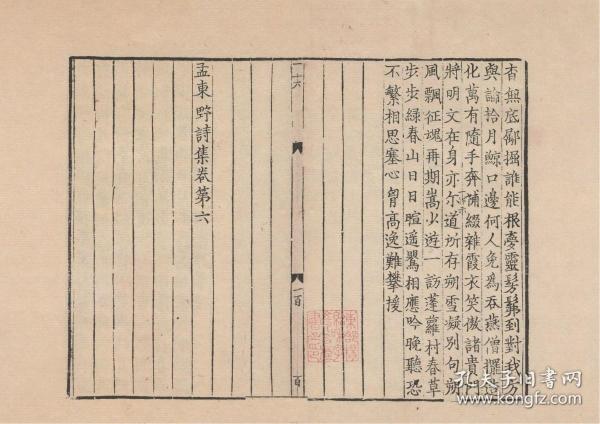 杳無底鄙掘誰能根夢靈髣髴到對我方
與論拾月鯨口邊何人免爲吞燕僧擺造
化萬有隨手奔補綴雜霞衣笑傲諸貴門
將明文在身亦尔道所存朔雪凝別句朔
風飄征魂再期嵩少遊一訪蓬蘿村春草
步步綠春山日日暄遥鸎相應吟晚聽恐
不繁相思塞心胷高逸難攀援
二十六
一百
百
孟東野詩集卷第六
孔夫子旧书网
www.kongfz.com